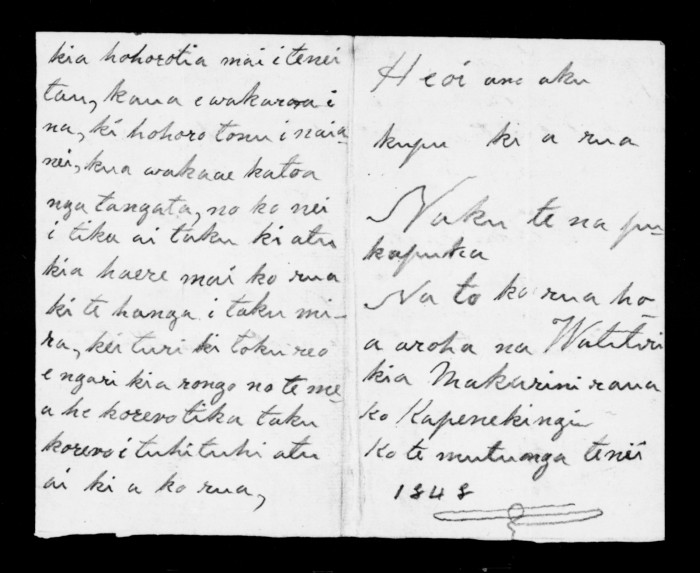 kia hohorotia mai i tenei
tau, kaua e wakaroa i
na, ki hohoro tonu i naia-
nei, kua wakaae katoa
nga tangata, no ko nei
i tika ai taku ki atu
kia haere mai ko rua
ki te hanga i taku mi-
ra, kei turi ki toku reo
e ngari kia rongo no te me-
a he korero tika taku
korero i tuhituhi atu
ai ki a ko rua,
Heoi ano aku
kupu ki a rua
Naku te na pu-
kapuka
Na to ko rua ho-
a aroha na Watitiri
kia Makarini raua
ko Kapenekingi
Ko te mutunga tenei
1848